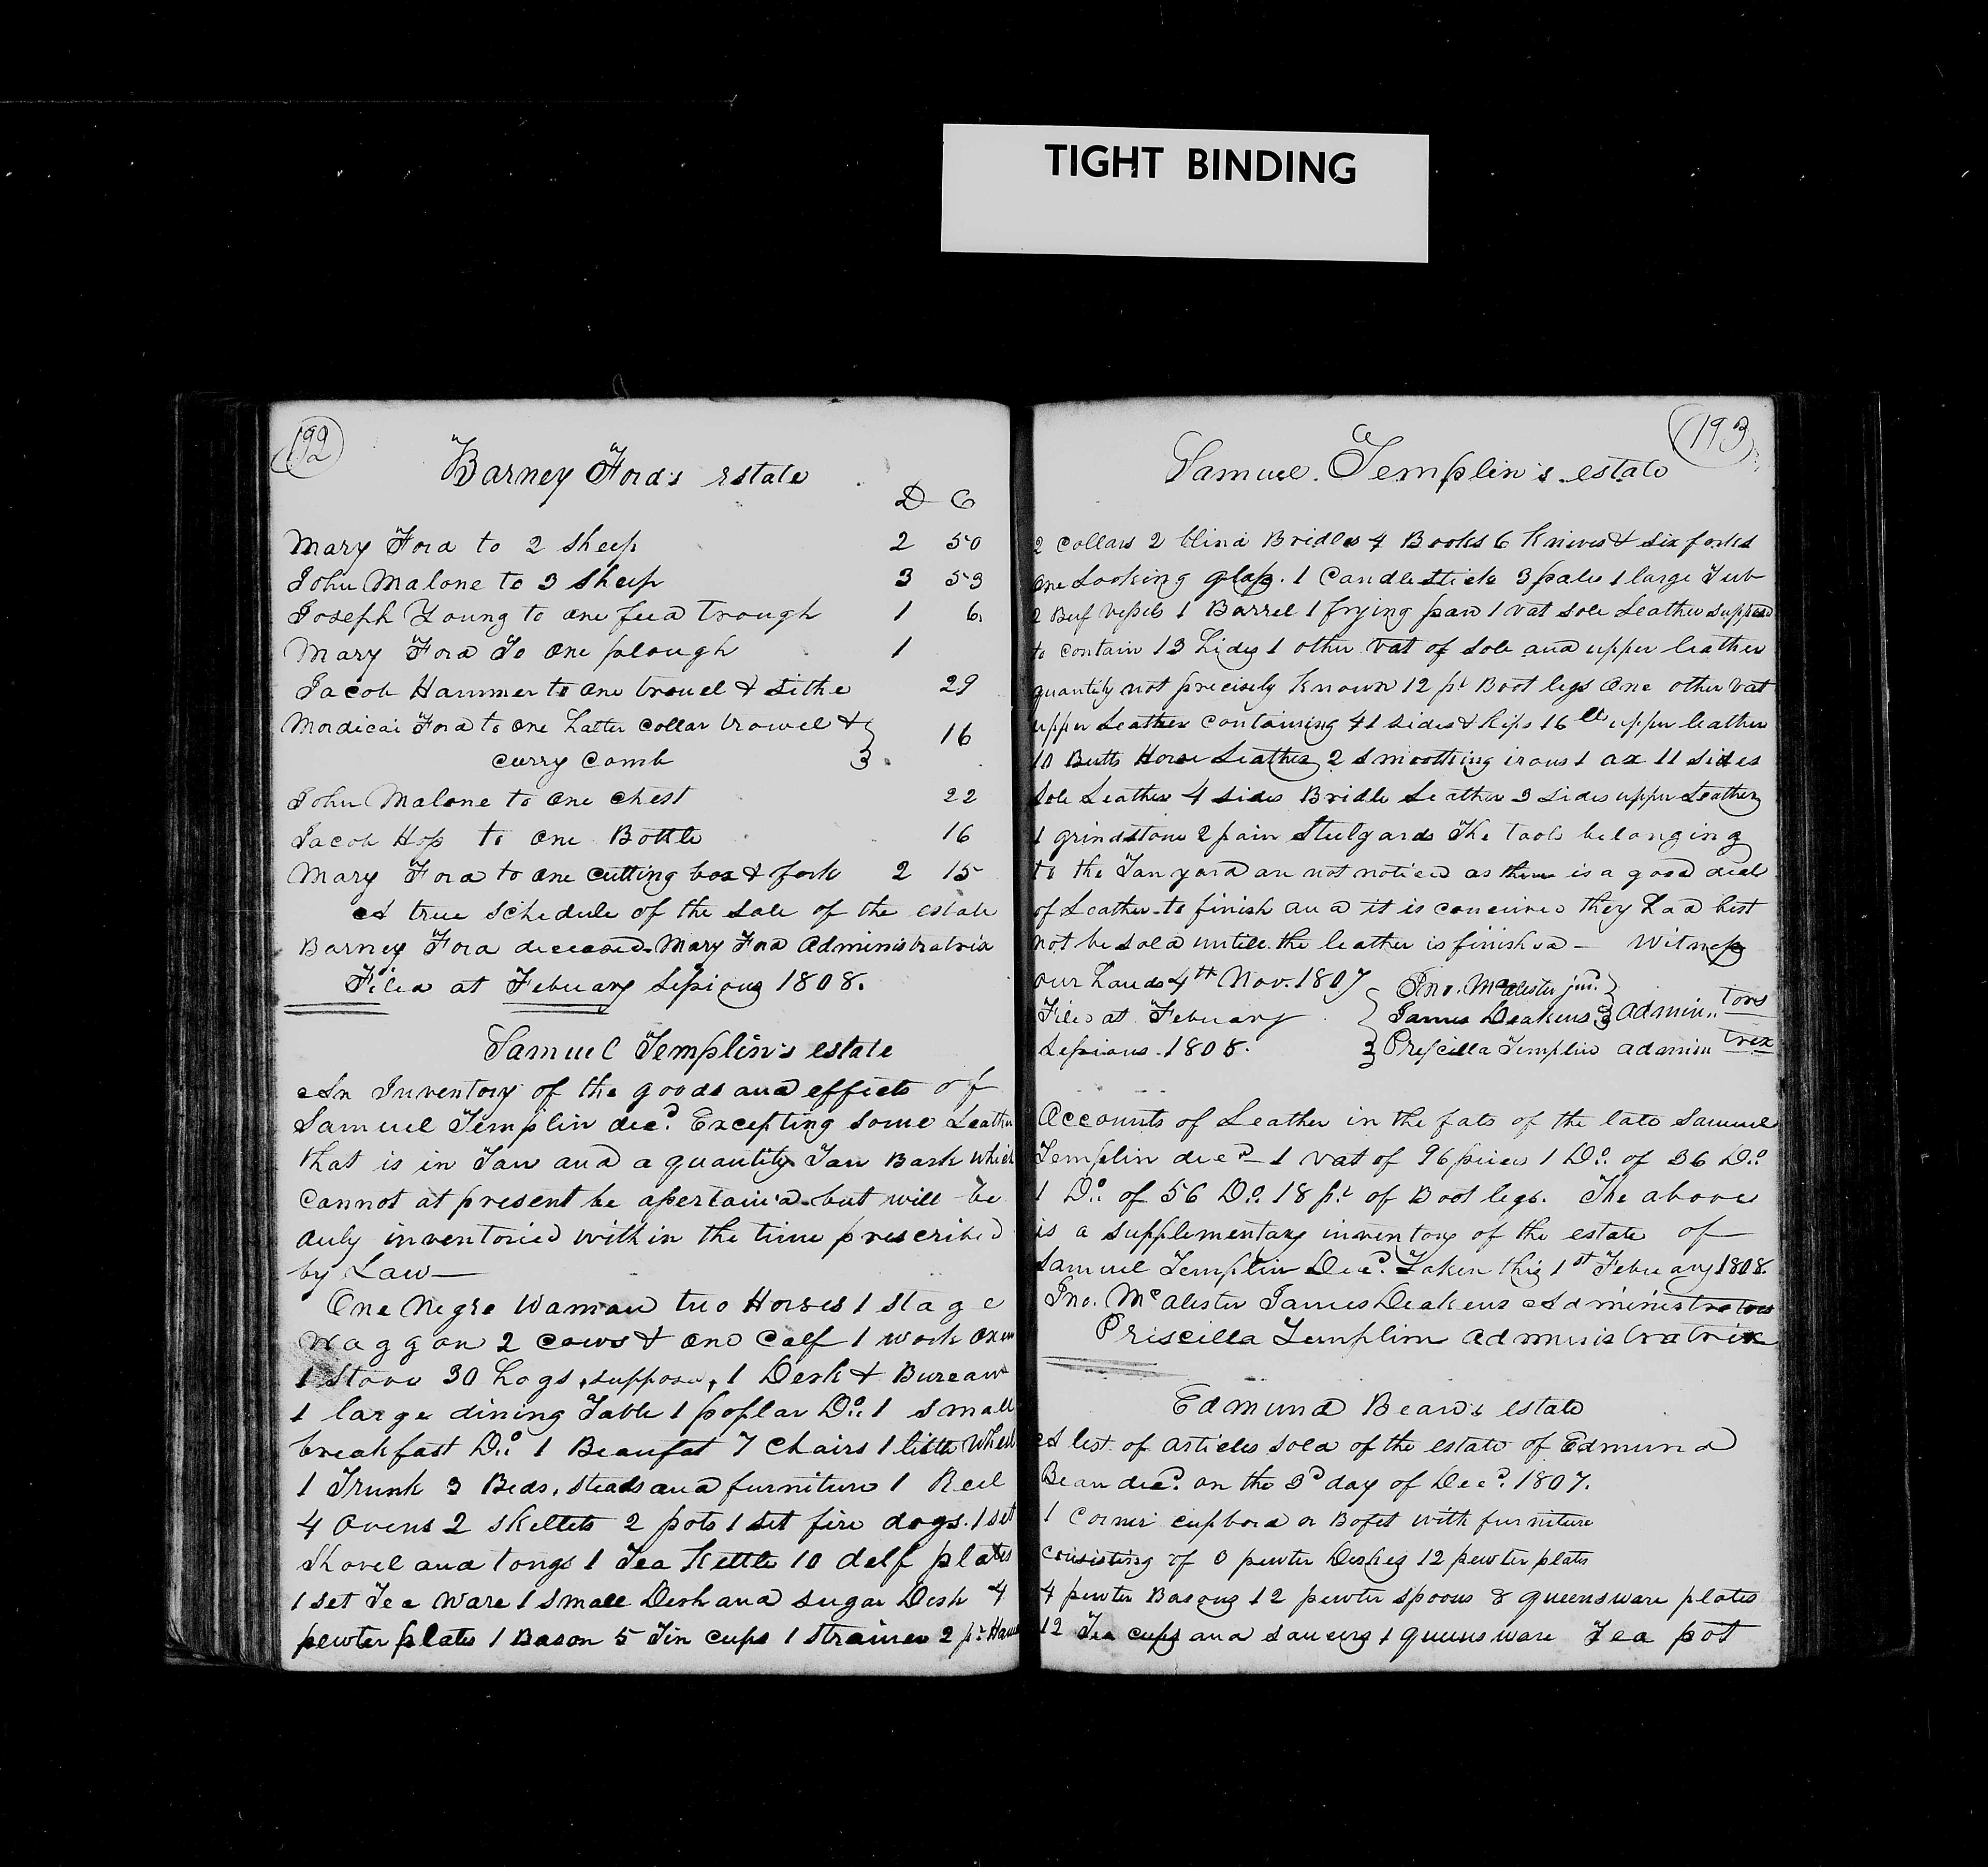 TIGHT BINDING
192
Barney Ford's estate
D C
Mary Ford to 2 sheep 2 50
John Malone to 3 sheep 3 53
Joseph Young to one feed trough 1 6
Mary Ford To one plough 1
Jacob Hammer to one trowel & sithe 29
Mordicai Ford to one halter collar trowel &
curry comb 16
John Malone to one chest 22
Jacob Hoss to one Bottle 16
Mary Ford to one cutting box & fork 2 15
A true schedule of the sale of the estate
Barney Ford deceased Mary Ford Administratrix
Filed at Febuary Sessions 1808.
Samuel Templin's estate
An Inventory of the goods and effects of
Samuel Templin decd. Excepting some Leather
that is in Tan and a quantity Tan Bark which
cannot at present be assertain'd but will be
duly inventoried within the time prescribed
by Law—
One Negro Woman two Horses 1 stage
waggon 2 cows & one calf 1 work oxen
1 stove 30 hogs, suppose, 1 Desk & Bureau
1 large dining Table 1 poplar Do. 1 small
breakfast Do. 1 Beaufat 7 chairs 1 little wheel
1 Trunk 3 Beds, steads and furniture 1 Reel
4 ovens 2 skellets 2 pots 1 set fire dogs. 1 set
Shovel and tongs 1 Tea kettle 10 delf plates
1 set Tea ware 1 small Dish and sugar Dish 4
pewter plates 1 Bason 5 Tin cups 1 strainer 2 pr. Hames
193
Samuel Templin's estate
2 collars 2 blind Bridles 4 Books 6 knives & six forks
one Looking glass. 1 candlestick 3 pales 1 large Tub
2 Beef vessels 1 Barrel 1 frying pan 1 vat sole Leather supposed
to contain 13 hides 1 other vat of sole and upper leather
quantity not precisely known 12 pr Boot legs one other vat
upper Leather containing 41 sides & kips 16 lb upper leather
10 Butts Horse Leather 2 smoothing irons 1 ax 11 sides
sole Leather 4 sides Bridle Leather 3 sides upper Leather
1 grindstone 2 pair Steelyards The tools belonging
to the Tan yard are not noticed as there is a good deal
of Leather to finish and it is conceived they had best
not be sold untill the leather is finished — Witness
our hands 4th Nov. 1807 Jno. McAlister jnr.
Filed at Febuary James Deakens Admin.. tors
Sessions 1808. Prescilla Templin admin trix
Accounts of Leather in the fats of the late Samuel
Templin decd— 1 vat of 96 pieces 1 Do. of 36 Do.
1 Do. of 56 Do. 18 pr. of Boot legs. The above
is a supplementary inventory of the estate of
Samuel Templin Decd. Taken this 1st Febuary 1808.
Jno. McAlister James Deakens Administrators
Priscilla Templin administratrix
Edmund Bean's estate
A list of articles sold of the estate of Edmund
Bean decd. on the 3d day of Decd. 1807.
1 corner cupbord or Bofet with furniture
consisting of 8 pewter Dishes 12 pewter plates
4 pewter Basons 12 pewter spoons 8 queensware plates
12 Tea cups and saucers 1 queensware Tea pot